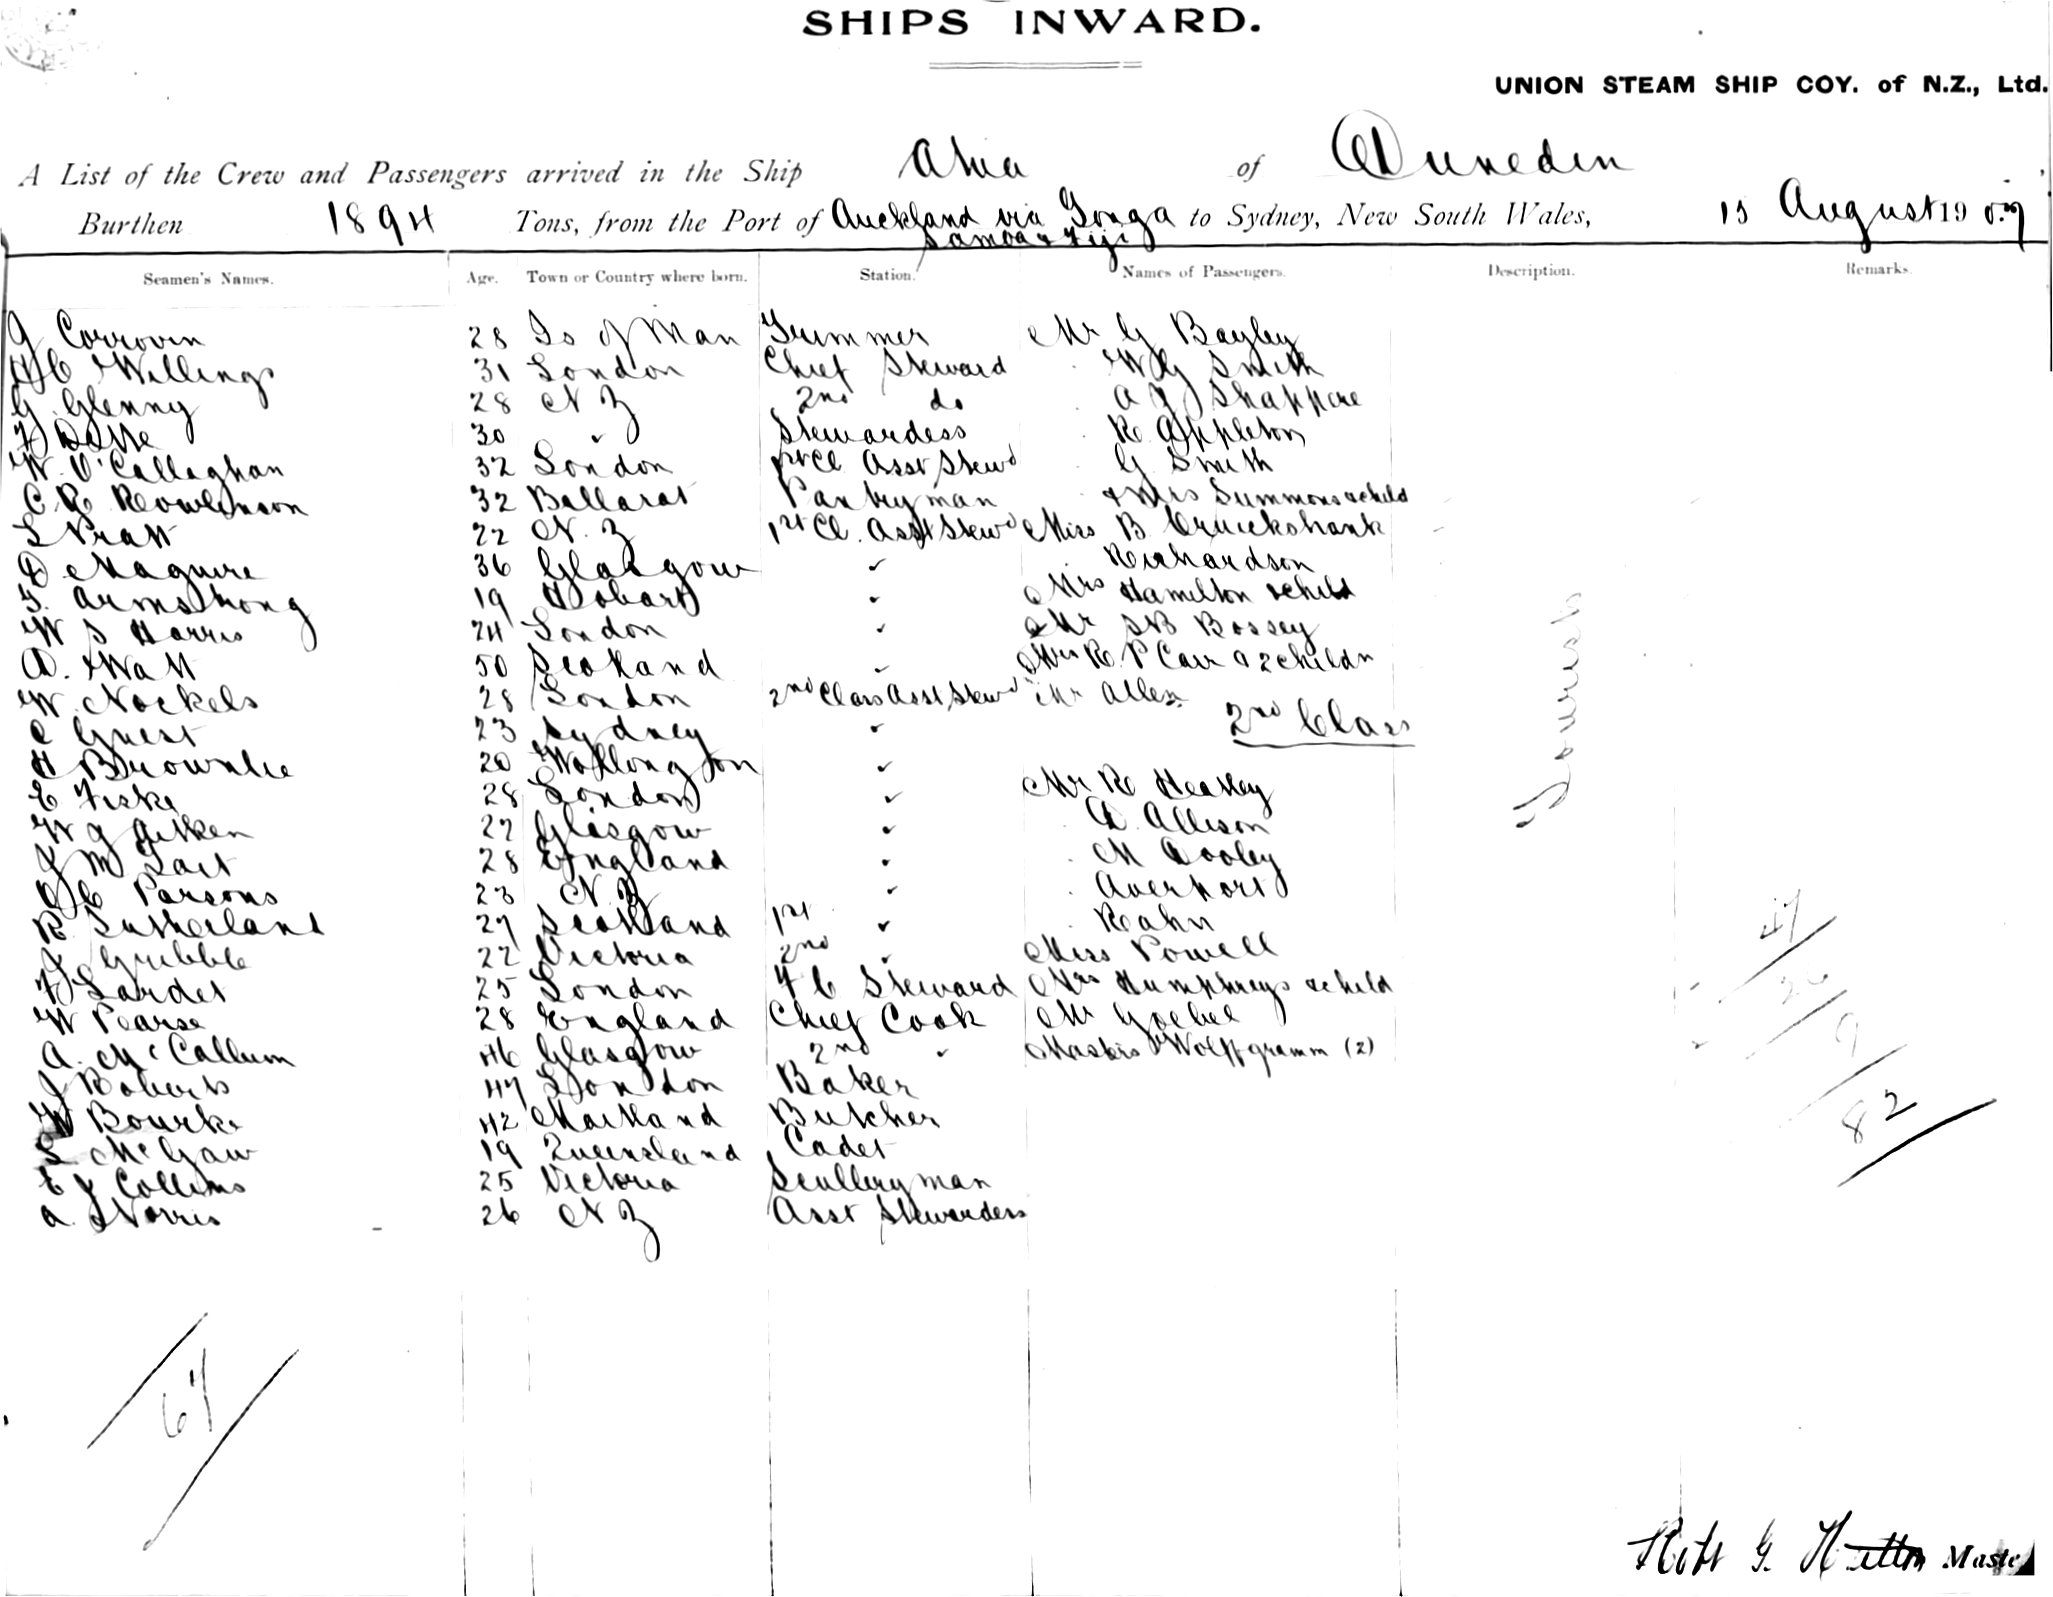 SHIPS INWARD.
UNION STEAM SHIP COY. of N.Z., Ltd.
A List of the Crew and Passengers arrived in the Ship Atua of Dunedin
Burthen 1894 Tons, from the Port of Auckland via Tonga Samoa & Fiji to Sydney, New South Wales, 15 August 1907
Seamen's Names. Age. Town or Country where born. Station. Names of Passengers. Description. Remarks.
J Corrovin 28 Is of Man Trimmer Mr G Bayley
H C Willings 31 London Chief Steward W G Smith
G Glenny 28 N Z 2nd do A J Shappere
30 " Stewardess R Appleton
W. O'Callaghan 32 London 1st Cl Asst Stewd G Smith
C R Rowlinson 32 Ballarat Pantryman & Mrs Summons & child
L Pratt 22 N. Z 1st Cl. Asst Stewd Miss B Cruickshank
D Maguire 36 Glasgow " Richardson
G. Armstrong 19 Hobart " Mrs Hamilton & child
W S Harris 24 London " Mr S B Bossey
A. Watt 50 Scotland " Mrs R. P Carr & 2 childn
W. Nockels 28 London 2nd Class Asst Stewd Mr Allen
C Guest 23 Sydney " 2nd Class
H Brownlie 20 Wollongton "
E Fiske 28 London " Mr R Heatley
W J Aitken 27 Glasgow " D. Allison
J M Tait 28 England " M Dooley
O C Parsons 23 N. Z "
R Sutherland 27 Scotland 1st " Rahn
J Gribble 22 Victoria 2nd " Miss Powell
F Lardet 25 London F C Steward Mrs Humphreys & child
W Pearse 28 England Chief Cook Mr Goebel
A. McCallum 46 Glasgow 2nd " Masters Wolffgramm (2)
J Roberts 47 London Baker
W Bourke 42 Maitland Butcher
L McGaw 19 Queensland Cadet
E J Collins 25 Victoria Sculleryman
A. Norris 26 N Z Asst Stewardess
Tourist
47
26
9
82
67
Robt G. Hutton Master